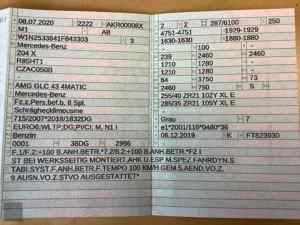 08.07.2020 2222 AKR00008X 2 2 287/6100 250
M1 AB 4751-4751 1929-1929
W1N2533641F843303 3 1630-1630 1880-1880
Mercedes-Benz - 100 -
204 X 239 2460 -
R85HT1 1210 1280 -
CZAC0508 1210 1280 -
84 3750 73
Mercedes-Benz 5 - 2500 750
AMG GLC 43 4MATIC 255/45 ZR21 102Y XL E
Fz.z.Pers.bef.b. 8 Spl. 285/35 ZR21 105Y XL E
Schräghecklimousine -
715/2007*2018/1832DG Grau 7
EURO6;WLTP;DG;PI/CI; M, N1 I e1*2001/116*0480*36
Benzin 06.12.2019 K FT823930
0001 36DG 2996
F.1/F.2:+100 B.ANH.BETR.*7.2/8.2:+100 B.ANH.BETR.*F2 I
ST BEI WERKSSEITIG MONTIERT.AHK U.ESP M.SPEZ.FAHRDYN.S
TABI.SYST.F.ANH.BETR.F.TEMPO 100 KM/H GEM.S.AEND.VO.Z.
9 AUSN.VO.Z.STVO AUSGESTATTET*